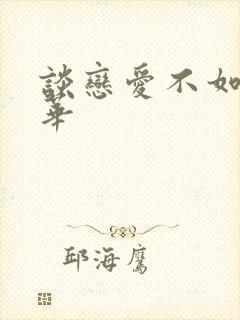 談戀愛不如
華
邱海鷹